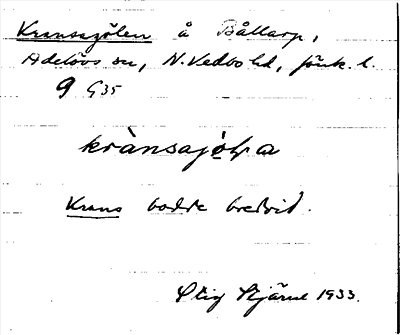 Kransagölen å Bållarp,
Adelövs sn, N. Vedbo hd, Jönk. l.
9 G35
krànsajölʒa
Krans bodde bredvid.
Stig Stjärne 1933.